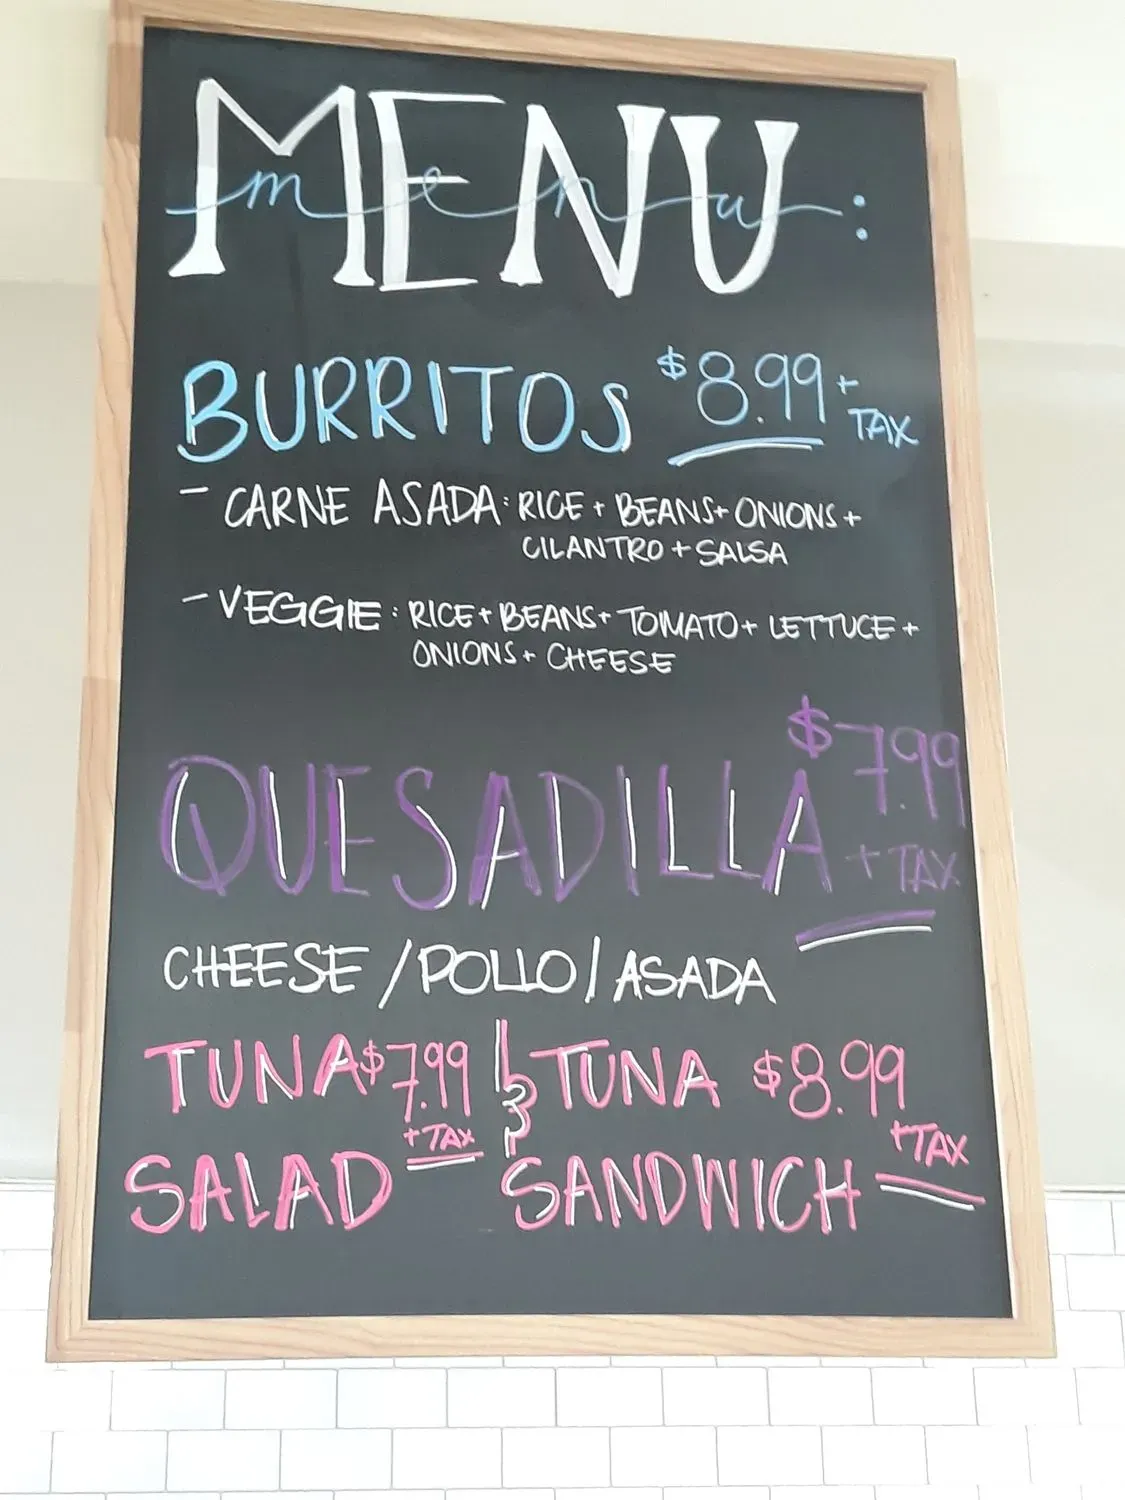 MENU
menu:
BURRITOS $8.99 + TAX
- CARNE ASADA: RICE + BEANS + ONIONS +
CILANTRO + SALSA
- VEGGIE: RICE + BEANS + TOMATO + LETTUCE +
ONIONS + CHEESE
QUESADILLA $7.99
+ TAX
CHEESE / POLLO / ASADA
TUNA $7.99
+ TAX
SALAD
TUNA $8.99
+ TAX
SANDWICH